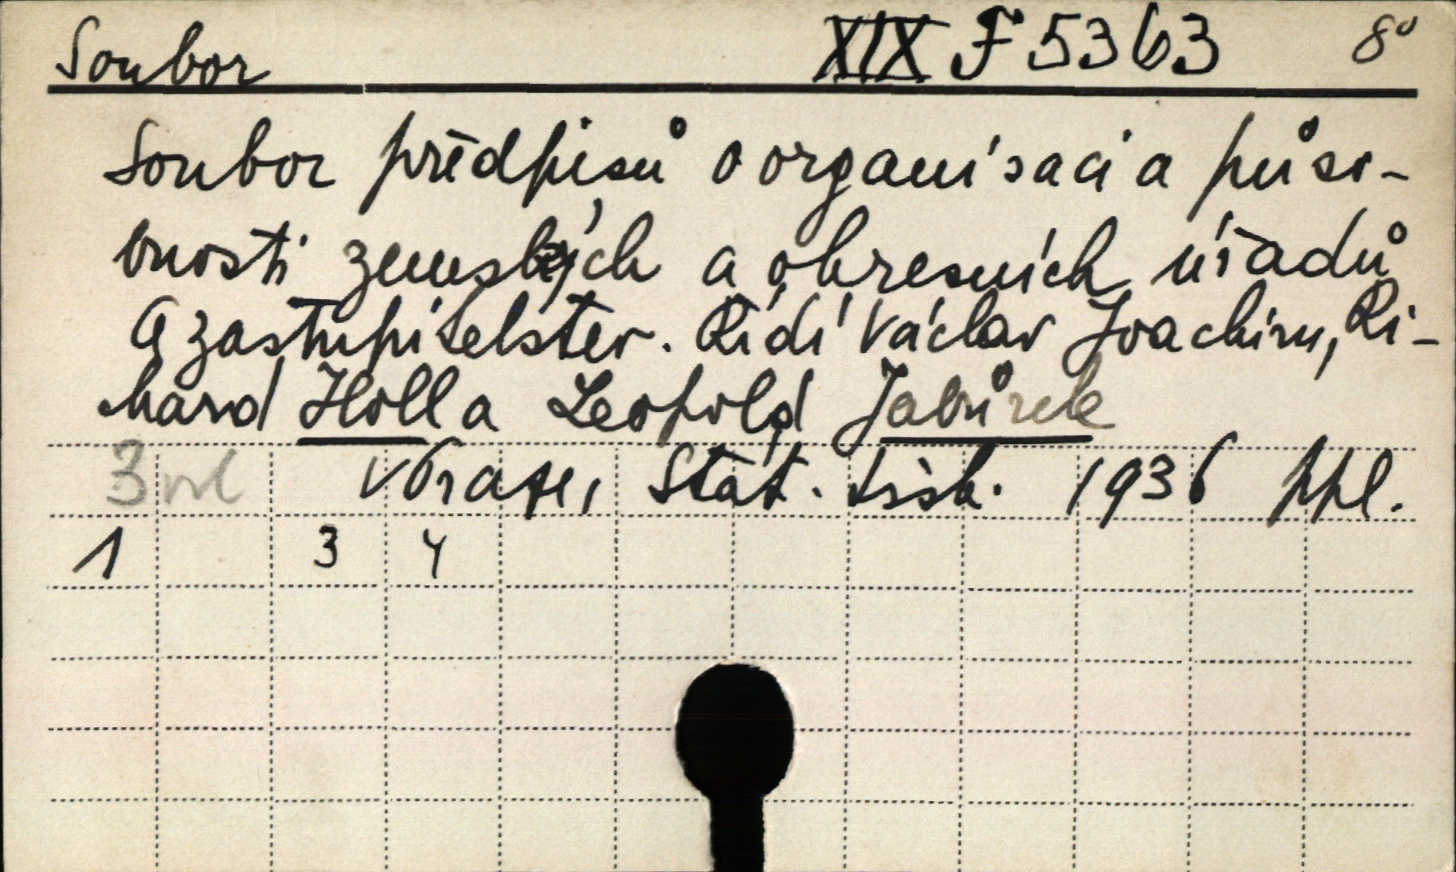 Soubor XIX F 5363 8°
Soubor předpisů o organisaci a půso-
bnosti zemských a okresních úřadů
a zastupitelstev. Řídí Václav Joachim, Ri-
hard Holl a Leopold Jabůrek
3 vl v Praze, Stát. tisk. 1936 ppl.
1 3 4